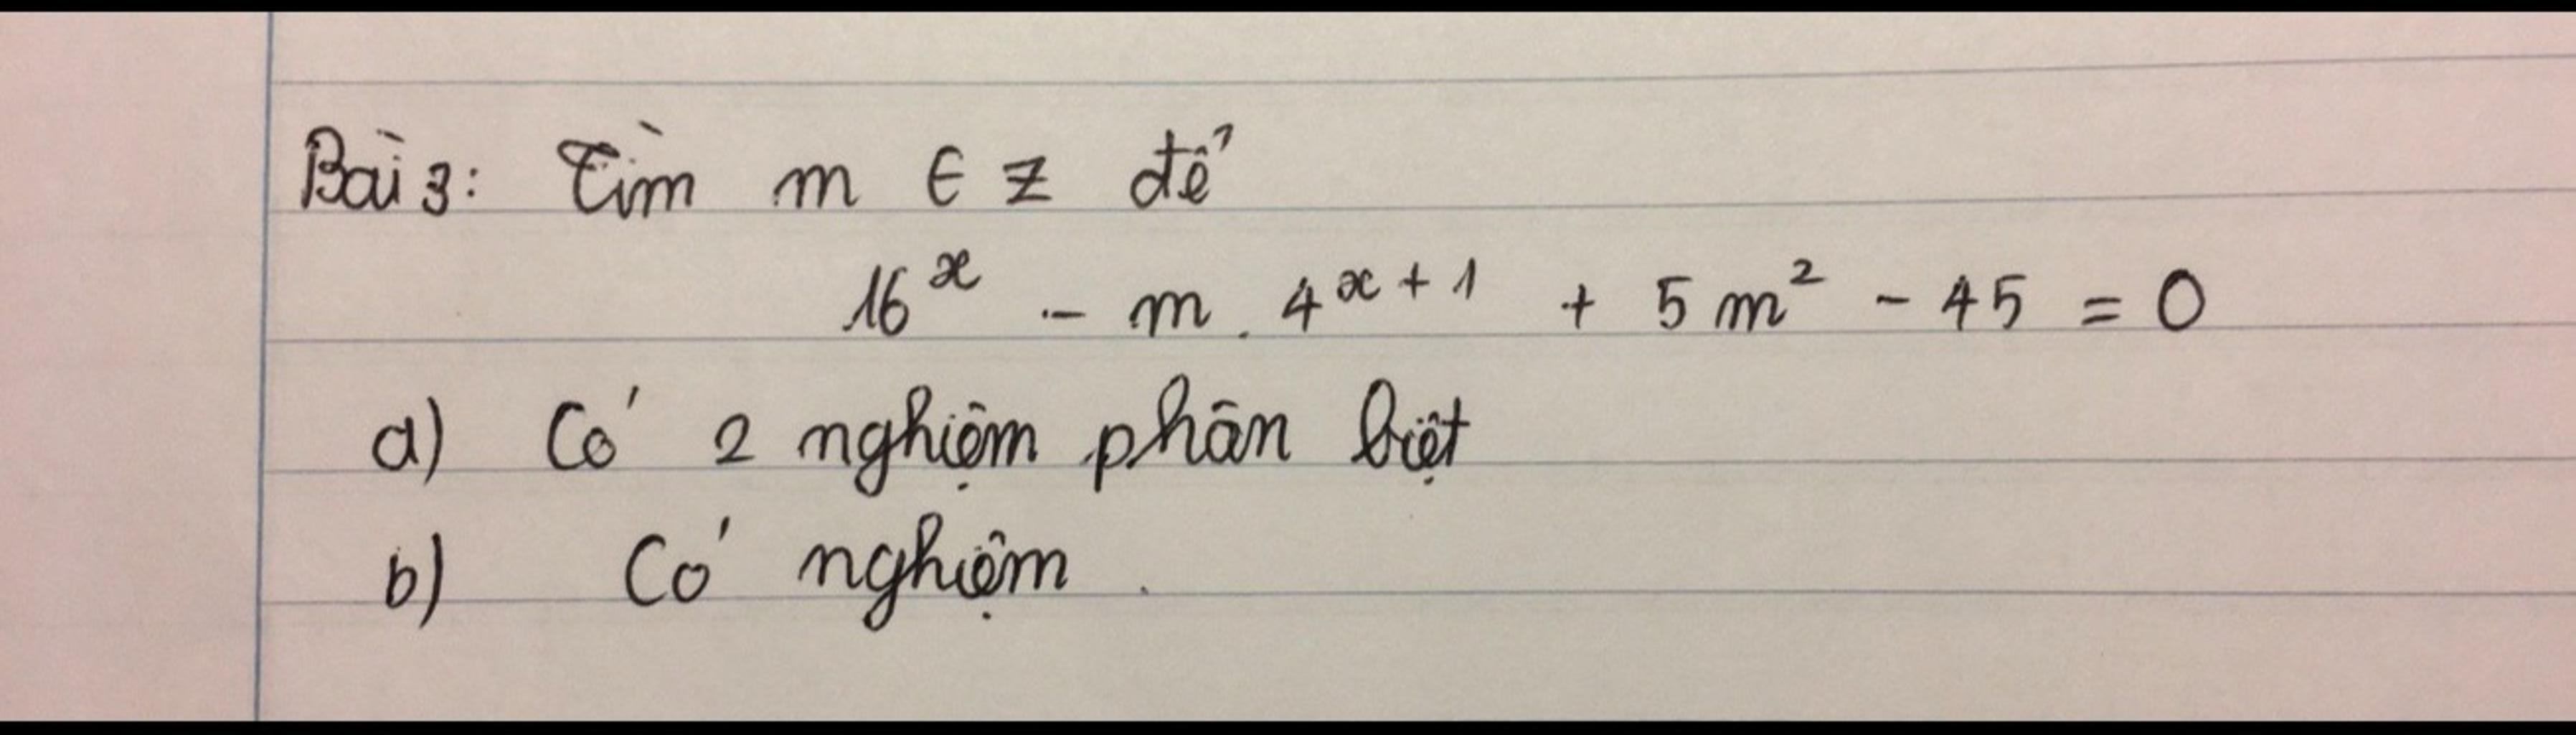 Bài 3: Tìm m ∈ Z để
16^x - m . 4^{x+1} + 5m² - 45 = 0
a) Có 2 nghiệm phân biệt
b) Có nghiệm .